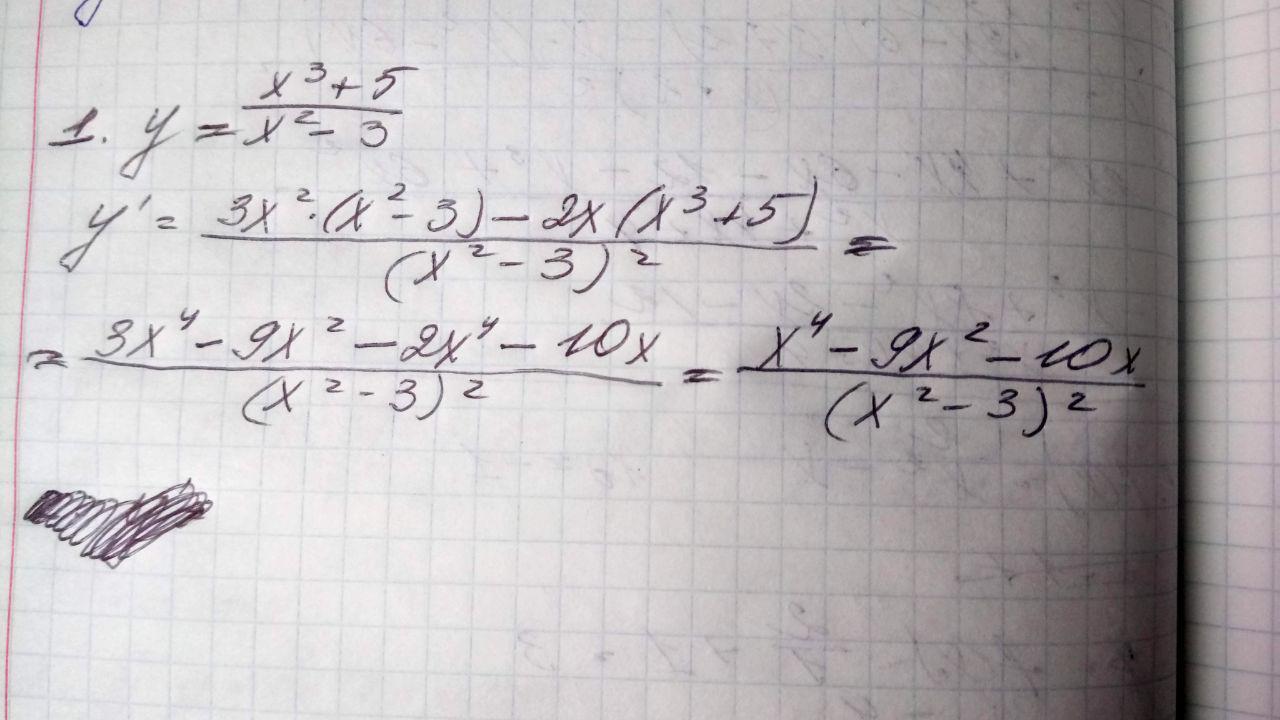 1. y = (x³ + 5)/(x² - 3)
y' = (3x² · (x² - 3) - 2x(x³ + 5))/((x² - 3)²) =
= (3x⁴ - 9x² - 2x⁴ - 10x)/((x² - 3)²) = (x⁴ - 9x² - 10x)/((x² - 3)²)